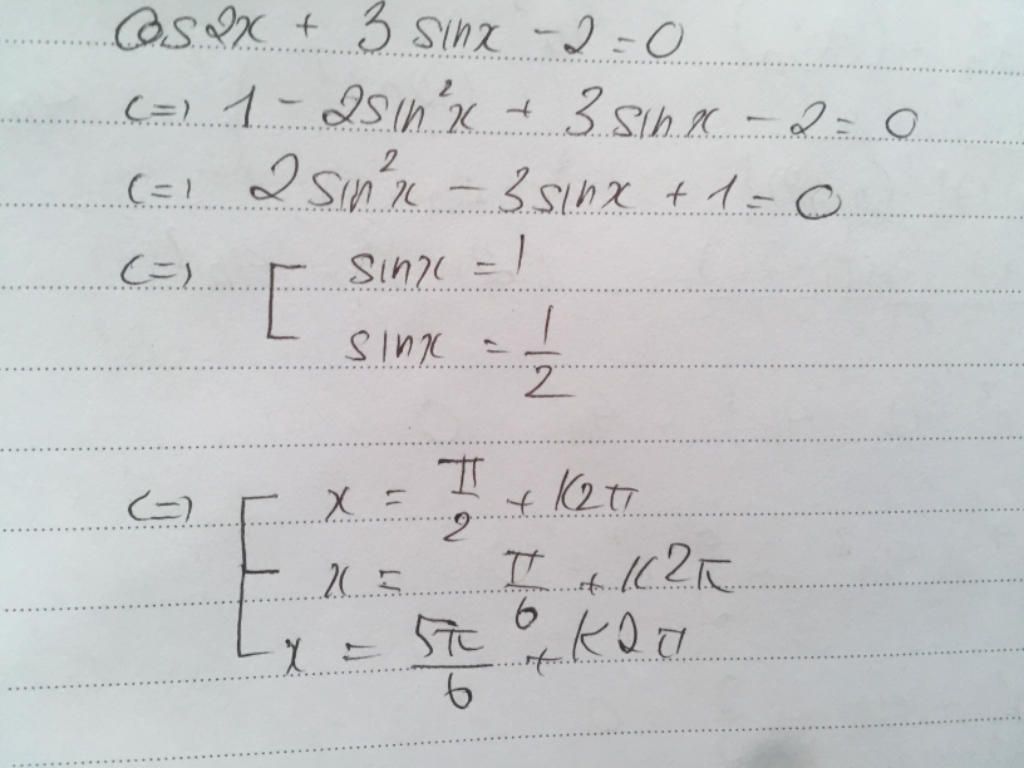 cos2x + 3 sinx - 2 = 0
<=> 1 - 2sin²x + 3 sinx - 2 = 0
<=> 2 sin²x - 3sinx + 1 = 0
<=> [ sinx = 1
sinx = 1/2
<=> [ x = π/2 + k2π
x = π/6 + k2π
x = 5π/6 + k2π